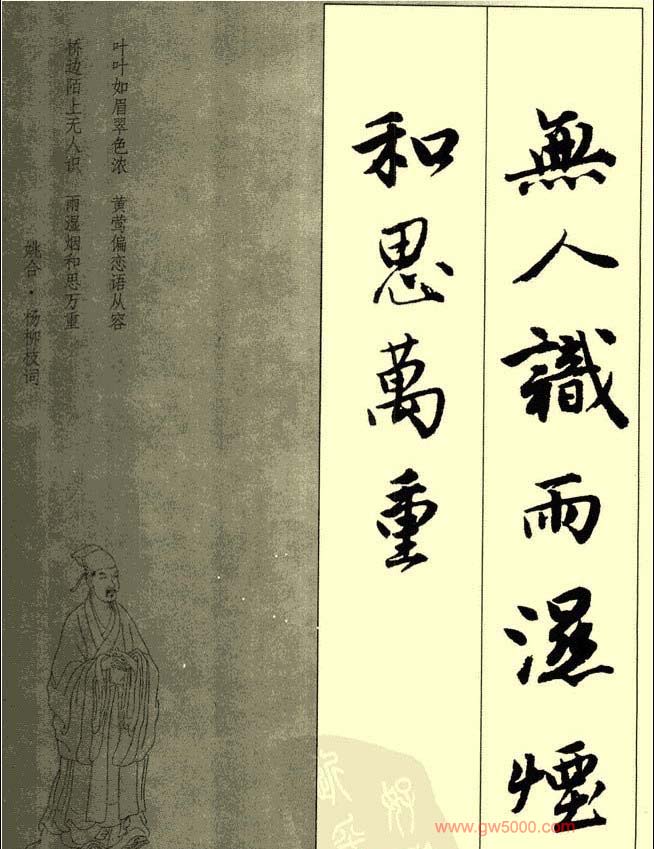 無人識雨濕煙
和思萬重
叶叶如眉翠色浓 黄莺偏恋语从容
桥边陌上无人识 雨湿烟和思万重
姚合·杨柳枝词
www.gw5000.com